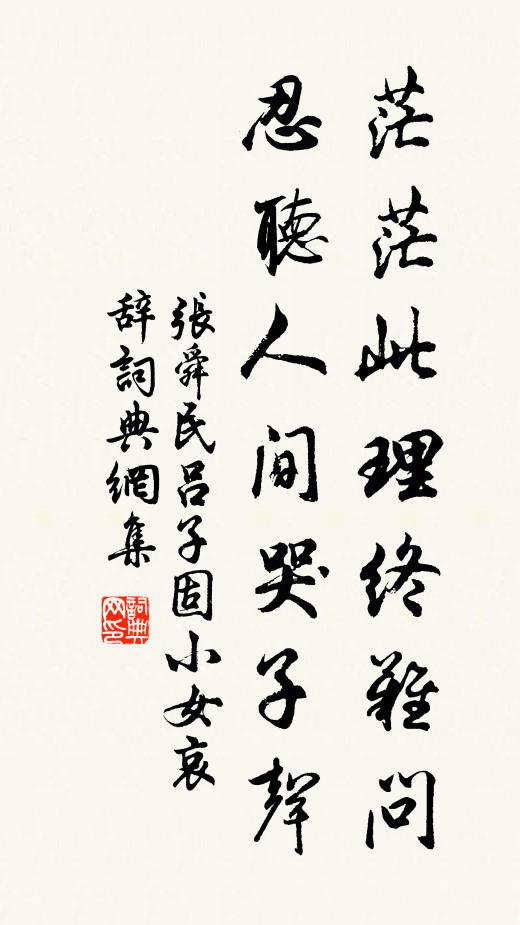 茫茫此理終難問
忍聽人間哭子聲
張舜民吕子固小女哀
辞詞典網集
詞典网印